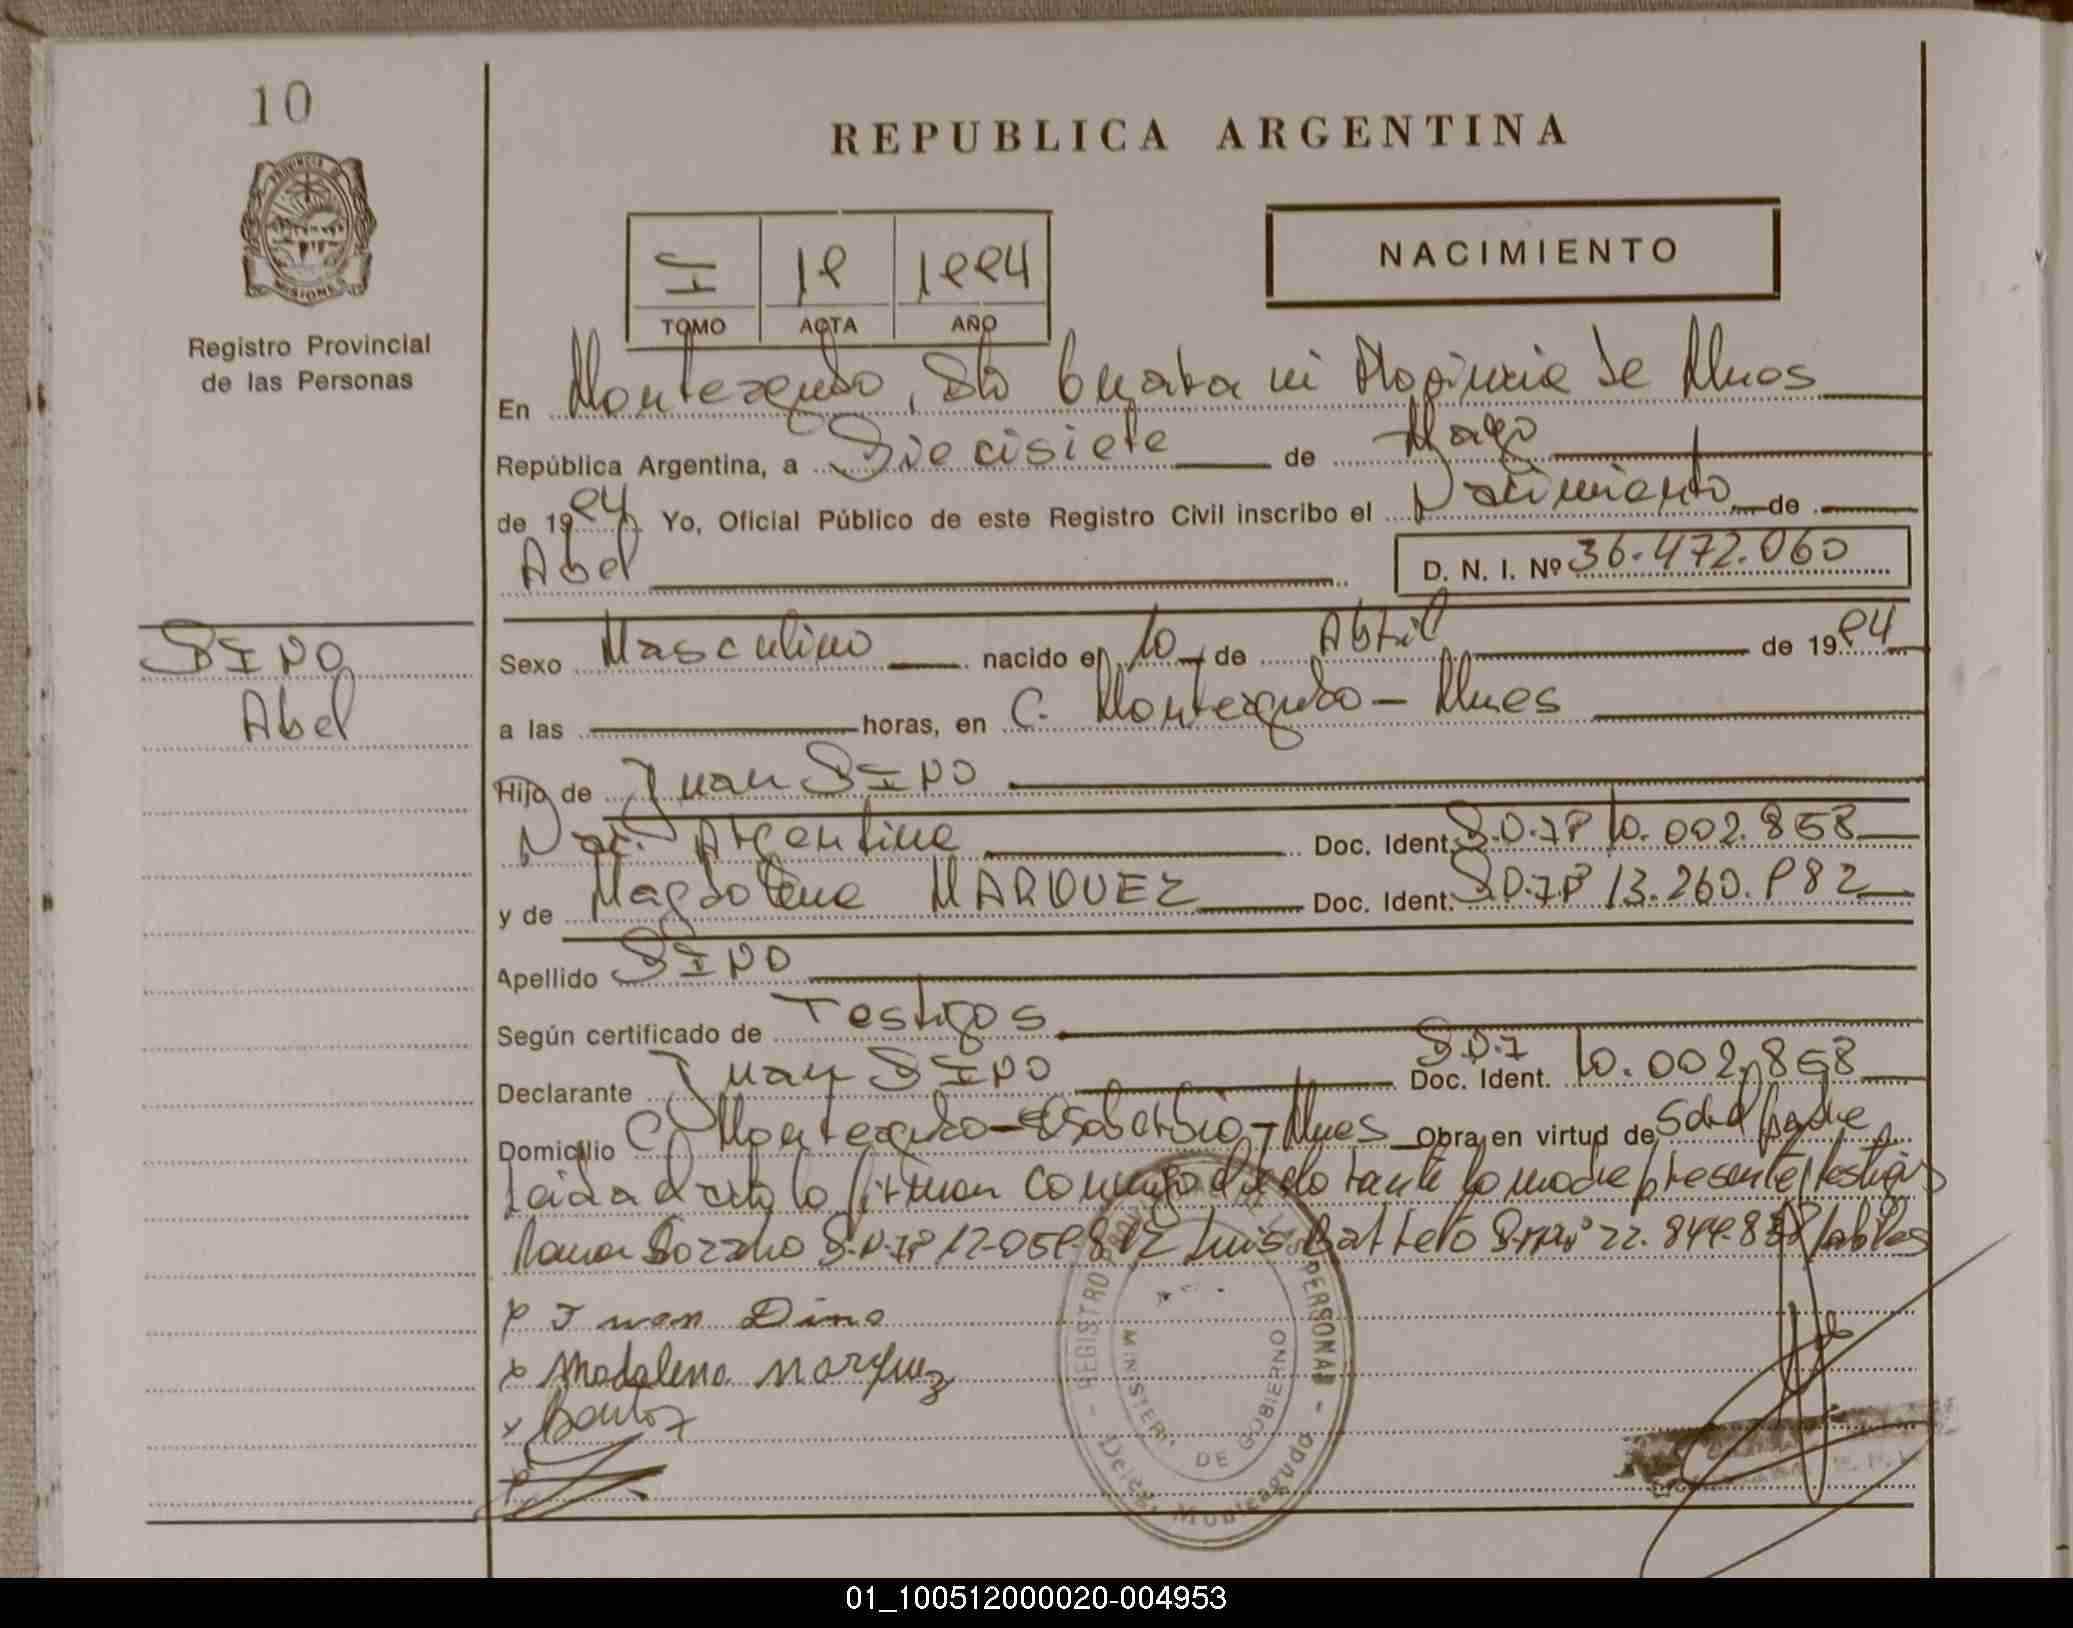 10
REPUBLICA ARGENTINA
PROVINCIA DE
MISIONES
Registro Provincial
de las Personas
NACIMIENTO
1994
TOMO ACTA AÑO
En Monteagudo, Dto Guarani Provincia de Mnes
República Argentina, a Diecisiete de Mayo
de 1994 Yo, Oficial Público de este Registro Civil inscribo el Nacimiento de
Abel
D. N. I. Nº 36.472.060
DINO
Abel
Sexo Masculino nacido el 10 de Abril de 1994
a las horas, en C. Monteagudo - Mnes
Hijo de Juan DINO
Nac. Argentina Doc. Ident. 10.002.858
y de Magdalena MARQUEZ Doc. Ident. 13.260.982
Apellido DINO
Según certificado de Testigos
Declarante Juan DINO Doc. Ident. D.N.I 10.002.858
Domicilio C. Monteagudo - - Mnes Obra en virtud de ser el padre
Leida el acta la firman conmigo el declarante la madre presente testigos
Luis
Juan Dino
Madalena Marquez
REGISTRO PERSONAS
MINISTERI DE GOBIERNO
Deleg. Monteagudo
01_100512000020-004953